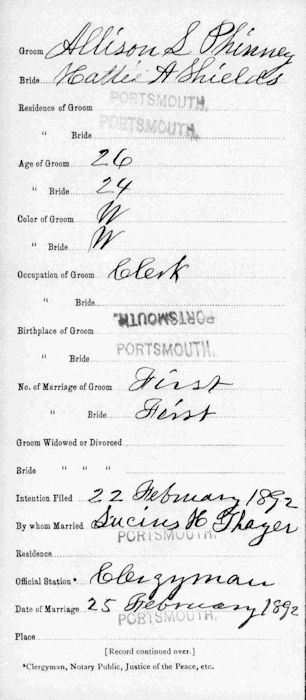 Groom Allison S Phinney
Bride Hattie A Shields
Residence of Groom PORTSMOUTH.
" Bride PORTSMOUTH.
Age of Groom 26
" Bride 24
Color of Groom W
" Bride W
Occupation of Groom Clerk
" Bride
Birthplace of Groom PORTSMOUTH.
" Bride PORTSMOUTH.
No. of Marriage of Groom First
" Bride First
Groom Widowed or Divorced
Bride " " "
Intention Filed 22 February 1892
By whom Married Lucius H Thayer
Residence PORTSMOUTH.
Official Station* Clergyman
Date of Marriage 25 February 1892
Place PORTSMOUTH.
[Record continued over.]
*Clergyman, Notary Public, Justice of the Peace, etc.